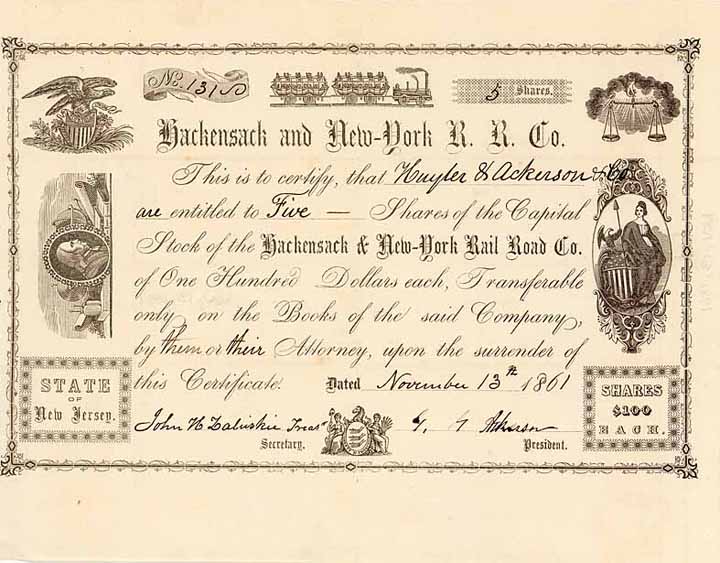 No. 131
5 Shares.
Hackensack and New-York R. R. Co.
This is to certify, that Huyler & Ackerson & Co
are entitled to Five — Shares of the Capital
Stock of the Hackensack & New-York Rail Road Co.
of One Hundred Dollars each, Transferable
only on the Books of the said Company,
by them or their Attorney, upon the surrender of
this Certificate. Dated November 13th 1861
STATE
OF
New Jersey.
SHARES
$100
EACH.
John H Treasr
Secretary.
President.